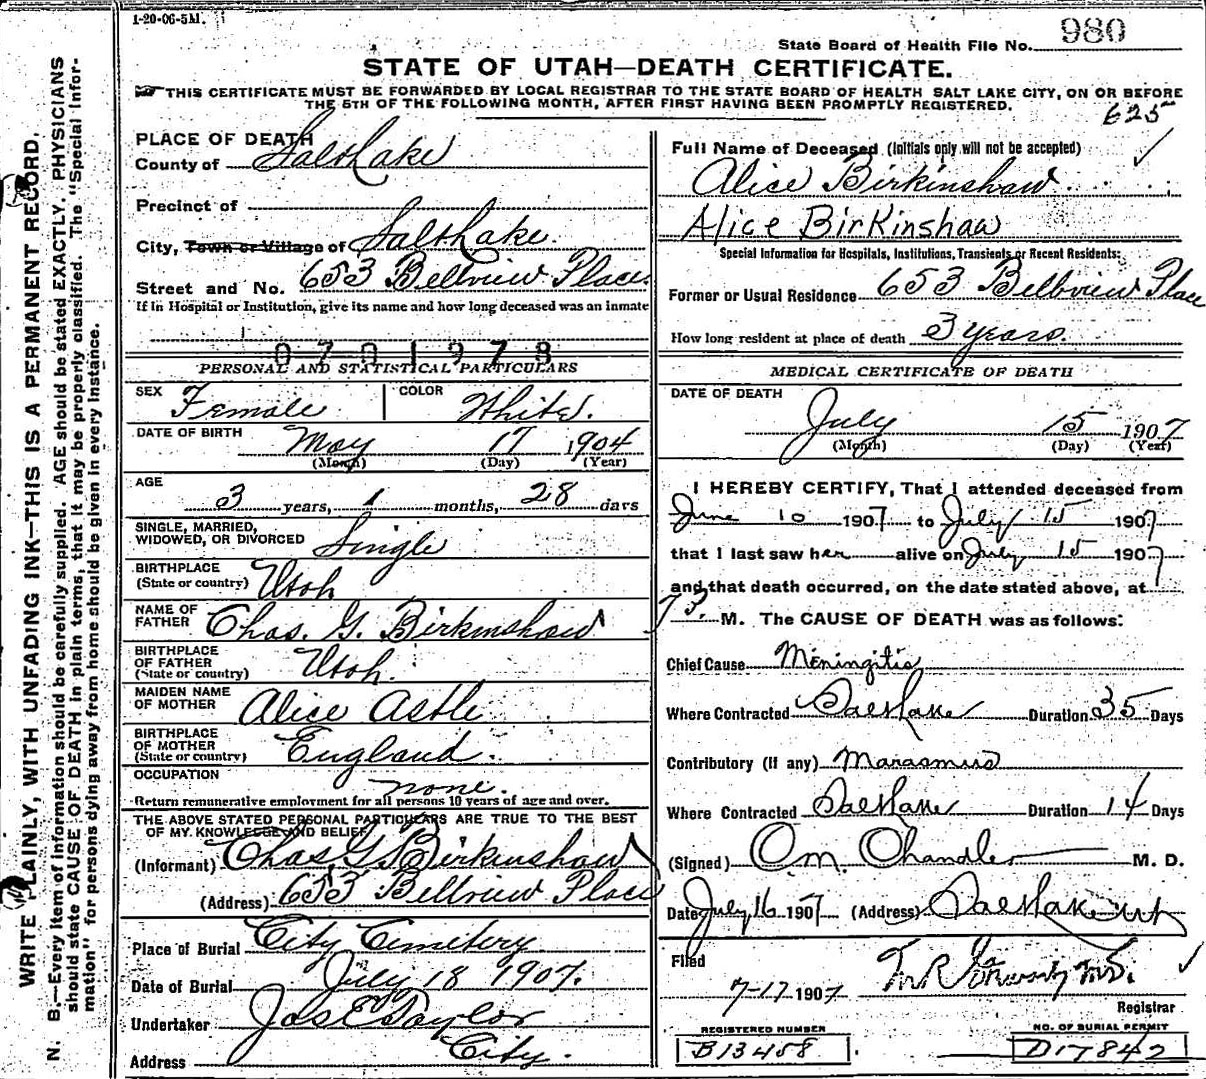 1-20-06-5M.
980
State Board of Health File No.
STATE OF UTAH—DEATH CERTIFICATE.
THIS CERTIFICATE MUST BE FORWARDED BY LOCAL REGISTRAR TO THE STATE BOARD OF HEALTH SALT LAKE CITY, ON OR BEFORE
THE 5TH OF THE FOLLOWING MONTH, AFTER FIRST HAVING BEEN PROMPTLY REGISTERED.
625
WRITE PLAINLY, WITH UNFADING INK—THIS IS A PERMANENT RECORD.
N. B.—Every item of information should be carefully supplied. AGE should be stated EXACTLY. PHYSICIANS
should state CAUSE OF DEATH in plain terms, that it may be properly classified. The "Special Infor-
mation" for persons dying away from home should be given in every instance.
PLACE OF DEATH
County of Salt Lake
Precinct of
City, Town or Village of Salt Lake.
Street and No. 653 Bellview Place
If in Hospital or Institution, give its name and how long deceased was an inmate
0701978
PERSONAL AND STATISTICAL PARTICULARS
SEX Female COLOR White.
DATE OF BIRTH May 17 1904
(Month) (Day) (Year)
AGE 3 years, 1 months, 28 days
SINGLE, MARRIED,
WIDOWED, OR DIVORCED Single
BIRTHPLACE
(State or country) Utah
NAME OF
FATHER Chas. G. Birkinshaw
BIRTHPLACE
OF FATHER
(State or country) Utah.
MAIDEN NAME
OF MOTHER Alice Astle
BIRTHPLACE
OF MOTHER
(State or country) England.
OCCUPATION none.
Return remunerative employment for all persons 10 years of age and over.
THE ABOVE STATED PERSONAL PARTICULARS ARE TRUE TO THE BEST
OF MY KNOWLEDGE AND BELIEF
(Informant) Chas. G. Birkinshaw
(Address) 653 Bellview Place
Place of Burial City Cemetery
Date of Burial July 18 1907.
Undertaker Jos E Taylor
Address City.
Full Name of Deceased (Initials only will not be accepted)
Alice Birkinshaw
Alice Birkinshaw
Special Information for Hospitals, Institutions, Transients or Recent Residents:
Former or Usual Residence 653 Bellview Place
How long resident at place of death 3 years.
MEDICAL CERTIFICATE OF DEATH
DATE OF DEATH
July 15 1907
(Month) (Day) (Year)
I HEREBY CERTIFY, That I attended deceased from
June 10 1907 to July 15 1907
that I last saw her alive on July 15 1907
and that death occurred, on the date stated above, at
7 P. M. The CAUSE OF DEATH was as follows:
Chief Cause Meningitis
Where Contracted Salt Lake Duration 35 Days
Contributory (if any) Marasmus
Where Contracted Salt Lake Duration 14 Days
(Signed) O m. Chandler M. D.
Date July 16 1907 (Address) Salt Lake Ut
Filed
7-17 1907
Registrar
REGISTERED NUMBER
B13458
NO. OF BURIAL PERMIT
D17842